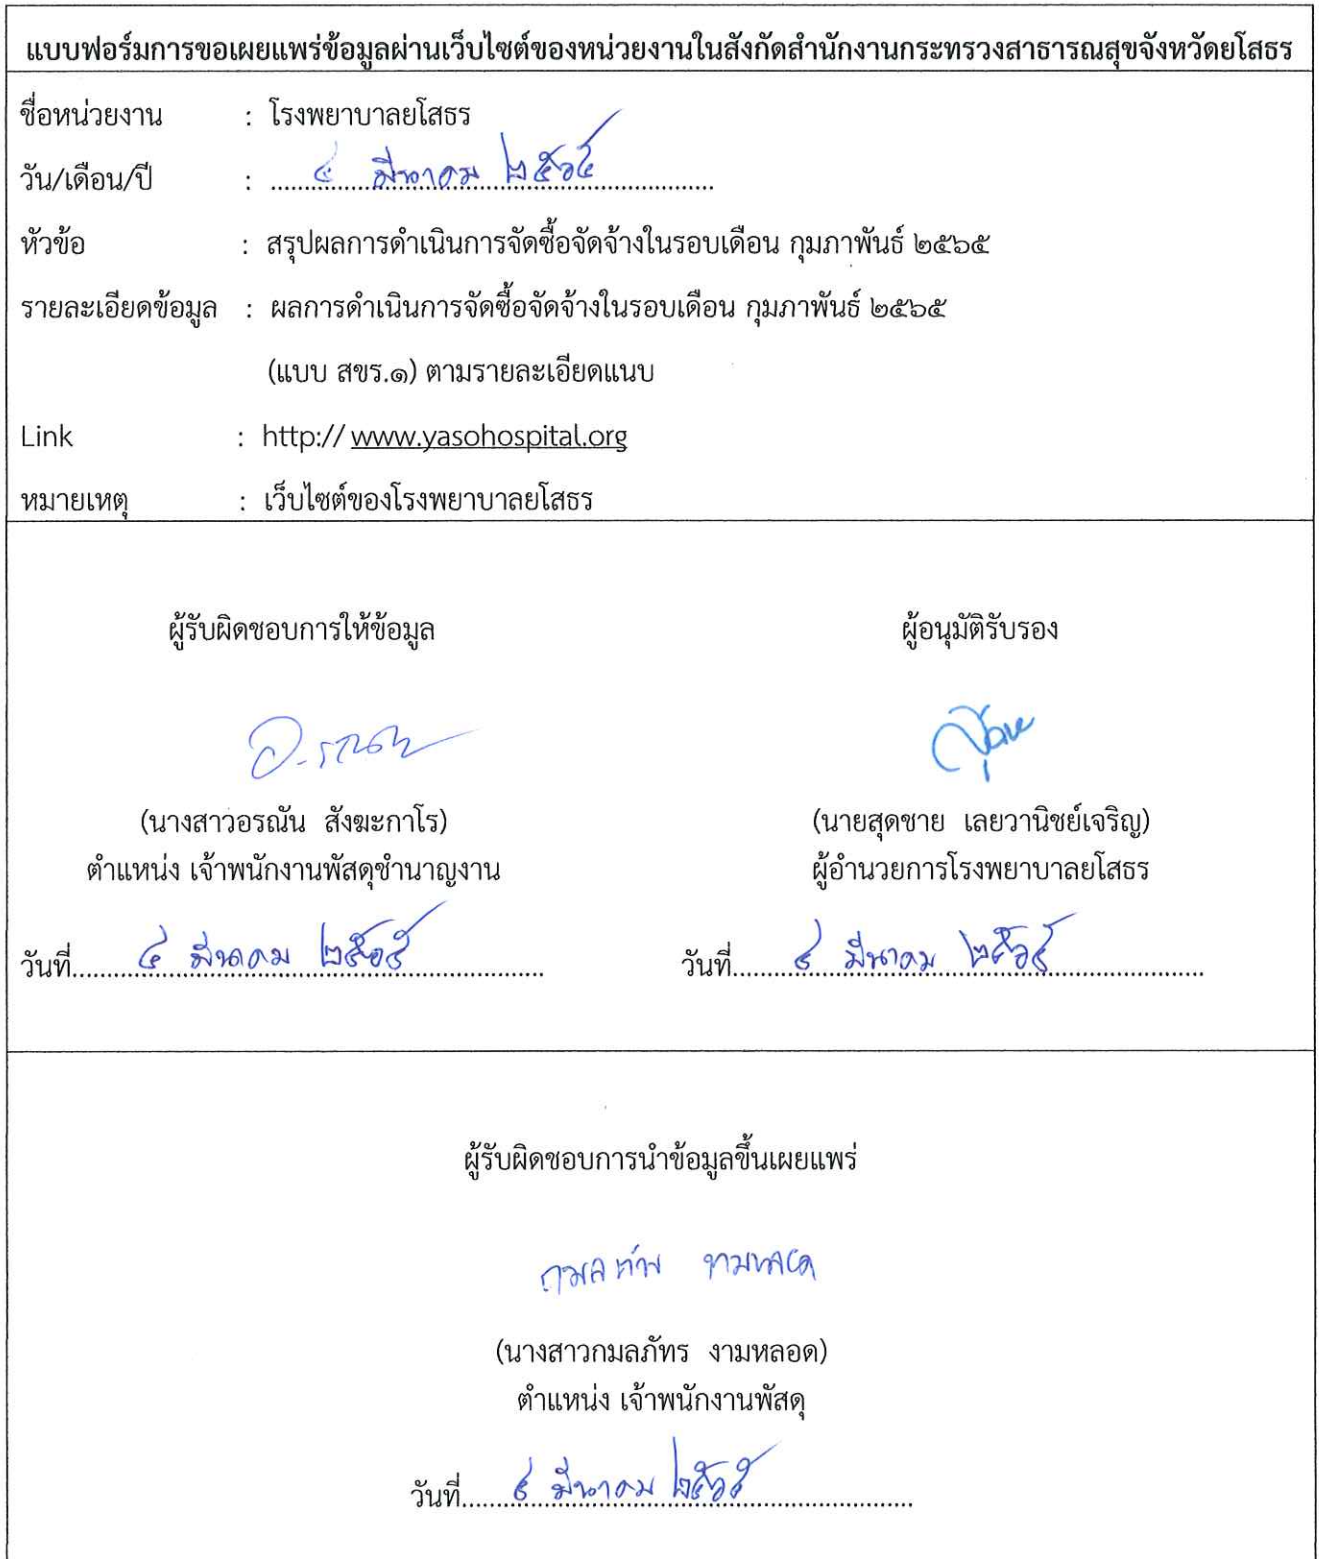 แบบฟอร์มการขอเผยแพร่ข้อมูลผ่านเว็บไซต์ของหน่วยงานในสังกัดสำนักงานกระทรวงสาธารณสุขจังหวัดยโสธร
ชื่อหน่วยงาน : โรงพยาบาลยโสธร
วัน/เดือน/ปี : ๔ มีนาคม ๒๕๖๕
หัวข้อ : สรุปผลการดำเนินการจัดซื้อจัดจ้างในรอบเดือน กุมภาพันธ์ ๒๕๖๕
รายละเอียดข้อมูล : ผลการดำเนินการจัดซื้อจัดจ้างในรอบเดือน กุมภาพันธ์ ๒๕๖๕
(แบบ สขร.๑) ตามรายละเอียดแนบ
Link : http:// www.yasohospital.org
หมายเหตุ : เว็บไซต์ของโรงพยาบาลยโสธร
ผู้รับผิดชอบการให้ข้อมูล ผู้อนุมัติรับรอง
(นางสาวอรณัน สังฆะกาโร) (นายสุดชาย เลยวานิชย์เจริญ)
ตำแหน่ง เจ้าพนักงานพัสดุชำนาญงาน ผู้อำนวยการโรงพยาบาลยโสธร
วันที่ ๔ มีนาคม ๒๕๖๕ วันที่ ๔ มีนาคม ๒๕๖๕
ผู้รับผิดชอบการนำข้อมูลขึ้นเผยแพร่
(นางสาวกมลภัทร งามหลอด)
ตำแหน่ง เจ้าพนักงานพัสดุ
วันที่ ๔ มีนาคม ๒๕๖๕